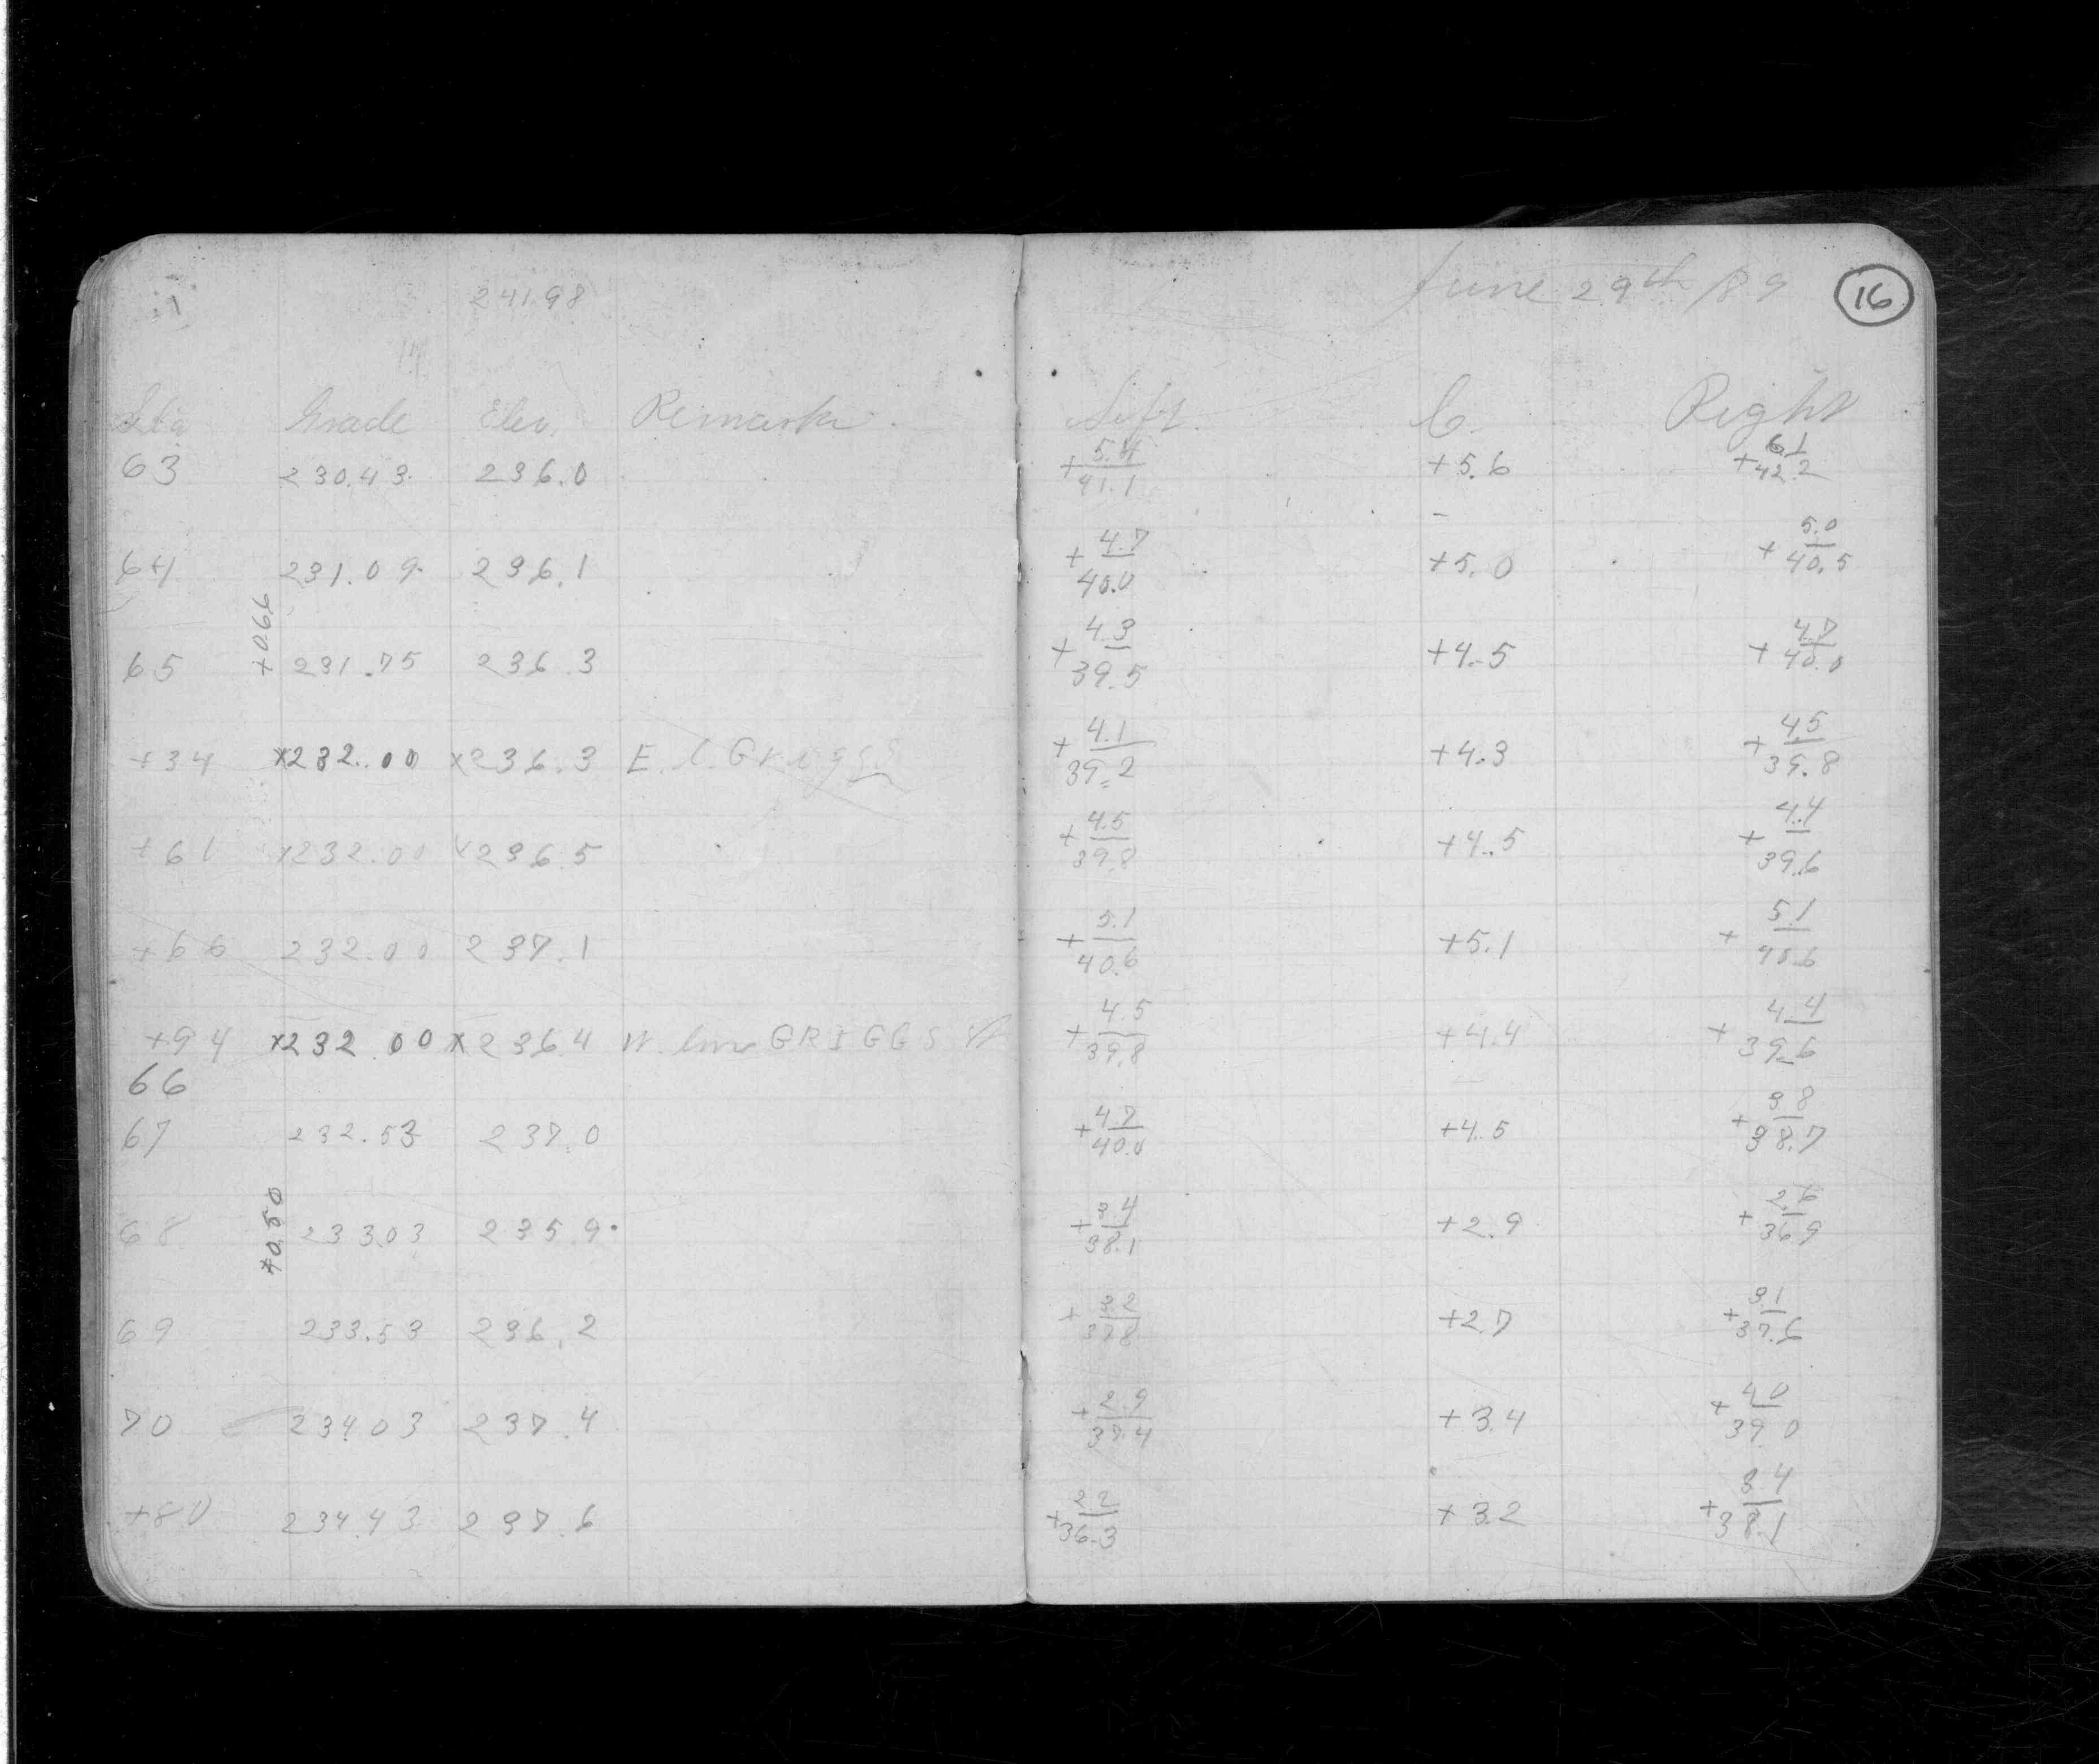 241.98 June 29th /89 16
Sta Grade Elev. Remarks Left. C. Right
63 230.43 236.0 +5.4/41.1 +5.6 +6.1/42.2
64 231.09 236.1 +4.7/40.0 +5.0 +5.0/40.5
+0.66
65 231.75 236.3 +4.3/39.5 +4.5 +4.7/40.0
+34 x232.00 x236.3 E. l. Griggs +4.1/39.2 +4.3 +4.5/39.8
+61 x232.00 x236.5 +4.5/39.8 +4.5 +4.4/39.6
+66 232.00 237.1 +5.1/40.6 +5.1 +5.1/40.6
+94 x232.00 x236.4 W. line GRIGGS St +4.5/39.8 +4.4 +4.4/39.6
66
67 232.53 237.0 +4.7/40.0 +4.5 +3.8/38.7
+0.50
68 233.03 235.9 +3.4/38.1 +2.9 +2.6/36.9
69 233.53 236.2 +3.2/37.8 +2.7 +3.1/37.6
70 234.03 237.4 +2.9/37.4 +3.4 +4.0/39.0
+80 234.43 237.6 +2.2/36.3 +3.2 +3.4/38.1